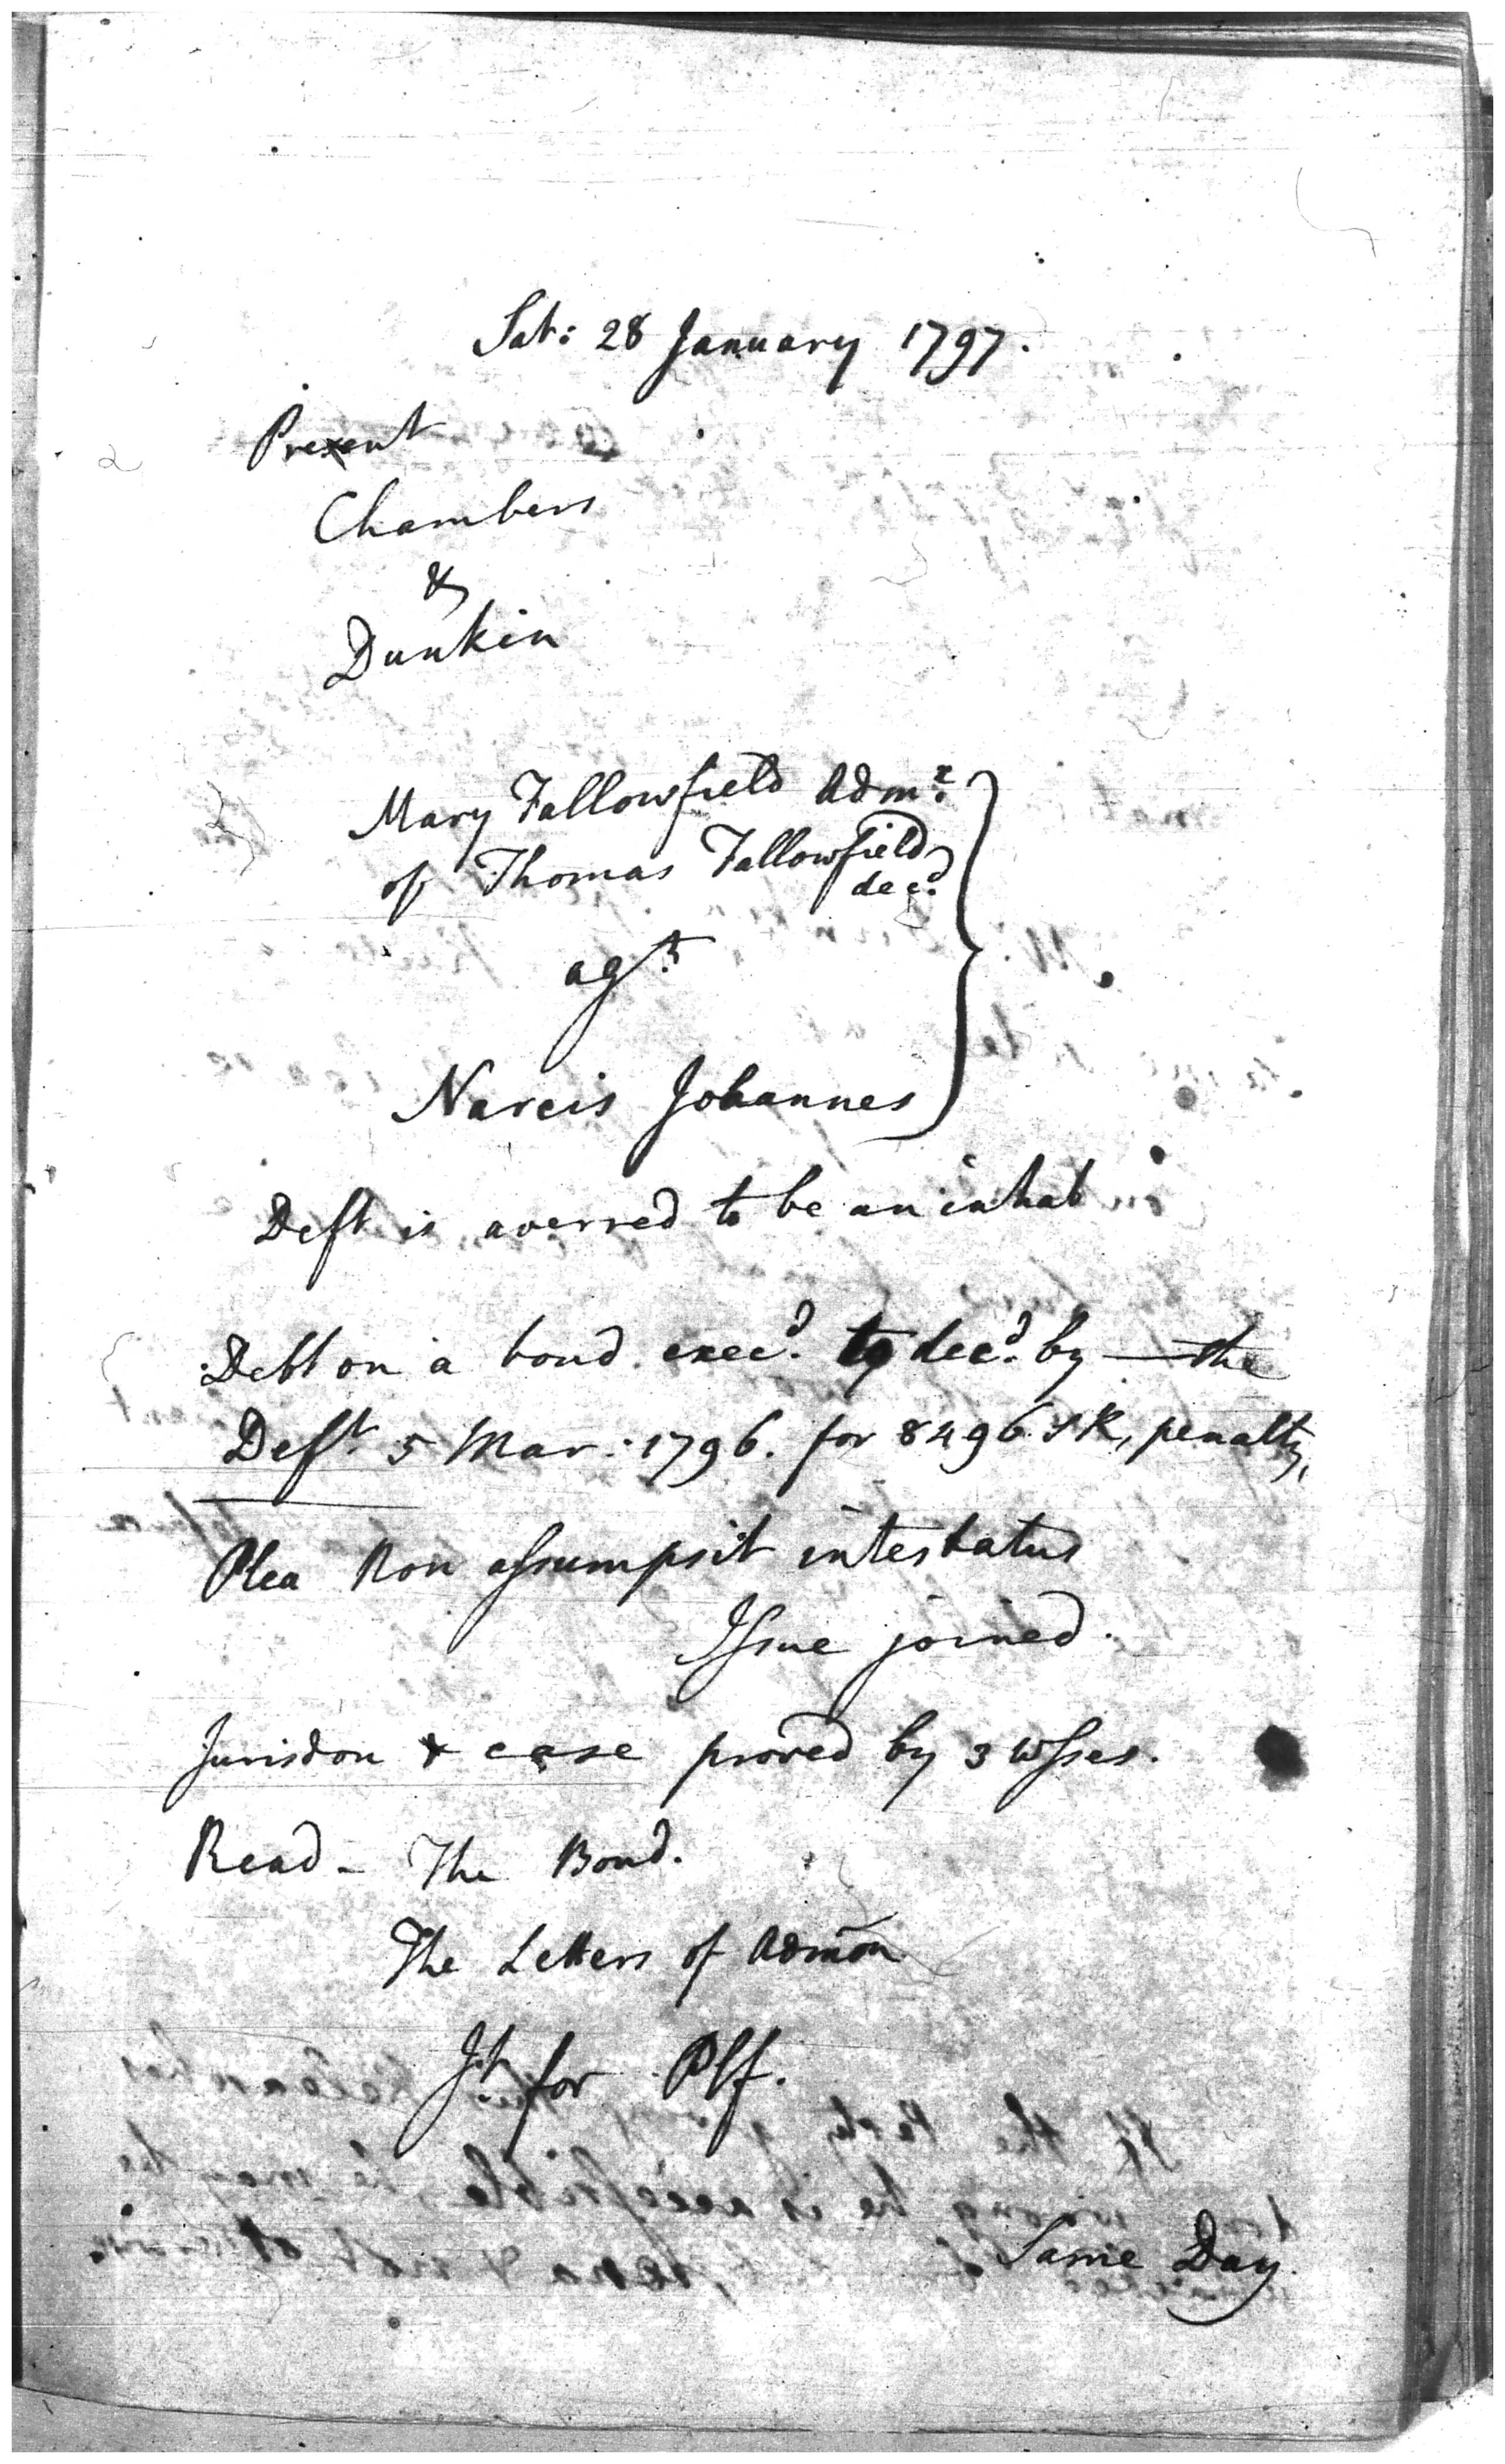 Sat: 28 January 1797.
Present
Chambers
&
Dunkin
Mary Fallowfield Admx.
of Thomas Fallowfield
decd.
agt.
Narcis Johannes
Deft is averred to be an inhab
Debt on a bond execd. to decd. by — the
Deft 5 Mar: 1796. for 8496 SR, penalty,
Plea Non assumpsit intestatus
Issue joined.
Jurisdon & case proved by 3 wsses.
Read - The Bond.
The Letters of Admon
Jt. for Plf.
Same Day.